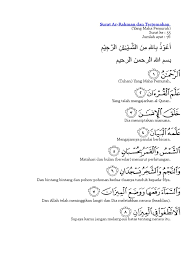 Surat Ar-Rahman dan Terjemahan
(Yang Maha Pemurah)
Surat ke : 55
Jumlah ayat : 78
أَعُوْذُ بِاللهِ مِنَ الشَّيْطَانِ الرَّجِيْمِ
بِسْمِ اللهِ الرَّحْمنِ الرَّحِيْمِ
الرَّحْمَنُ ﴿١﴾
(Tuhan) Yang Maha Pemurah,
عَلَّمَ الْقُرْءَانَ ﴿٢﴾
Yang telah mengajarkan al Quran.
خَلَقَ ﴿٣﴾
Dia menciptakan manusia.
عَلَّمَهُ الْبَيَانَ ﴿٤﴾
Mengajarnya pandai berbicara.
الشَّمْسُ وَالْقَمَرُ بِحُسْبَانٍ ﴿٥﴾
Matahari dan bulan (beredar) menurut perhitungan.
وَالنَّجْمُ وَالشَّجَرُ يَسْجُدَانِ ﴿٦﴾
Dan tumbuh-tumbuhan dan pohon-pohonan kedua-duanya tunduk kepada Nya.
وَالسَّمَاءَ رَفَعَهَا وَوَضَعَ الْمِيزَانَ ﴿٧﴾
Dan Allah telah meninggikan langit dan Dia meletakkan neraca (keadilan).
أَلَّا تَطْغَوْا فِي الْمِيزَانِ ﴿٨﴾
Supaya kamu jangan melampaui batas tentang neraca itu.